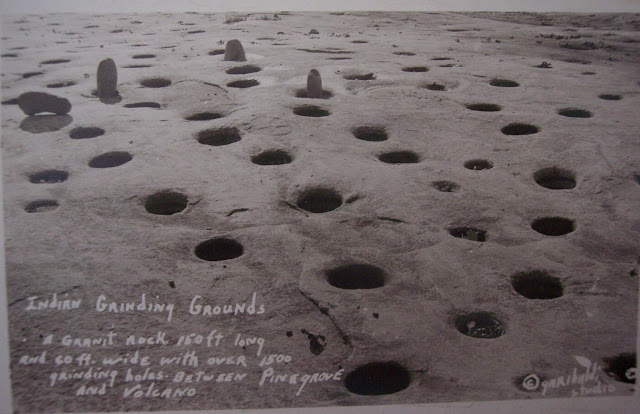 Indian Grinding Grounds
A Granit rock 150ft long
and 60ft. wide with over 1500
grinding holes. Between Pinegrove
and Volcano
© garibaldi
studio